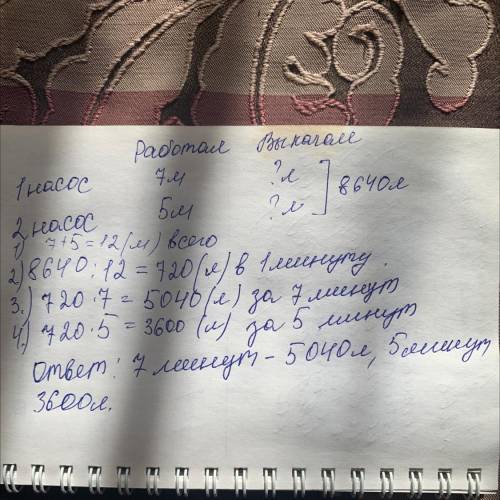 Работал Выкачал
1 насос 7м ?л ] 8640л
2 насос 5м ?л
1) 7+5=12(м) всего
2) 8640:12=720(л) в 1 минуту.
3.) 720·7=5040(л) за 7 минут
4.) 720·5=3600(л) за 5 минут
Ответ: 7 минут - 5040л, 5 минут
3600л.